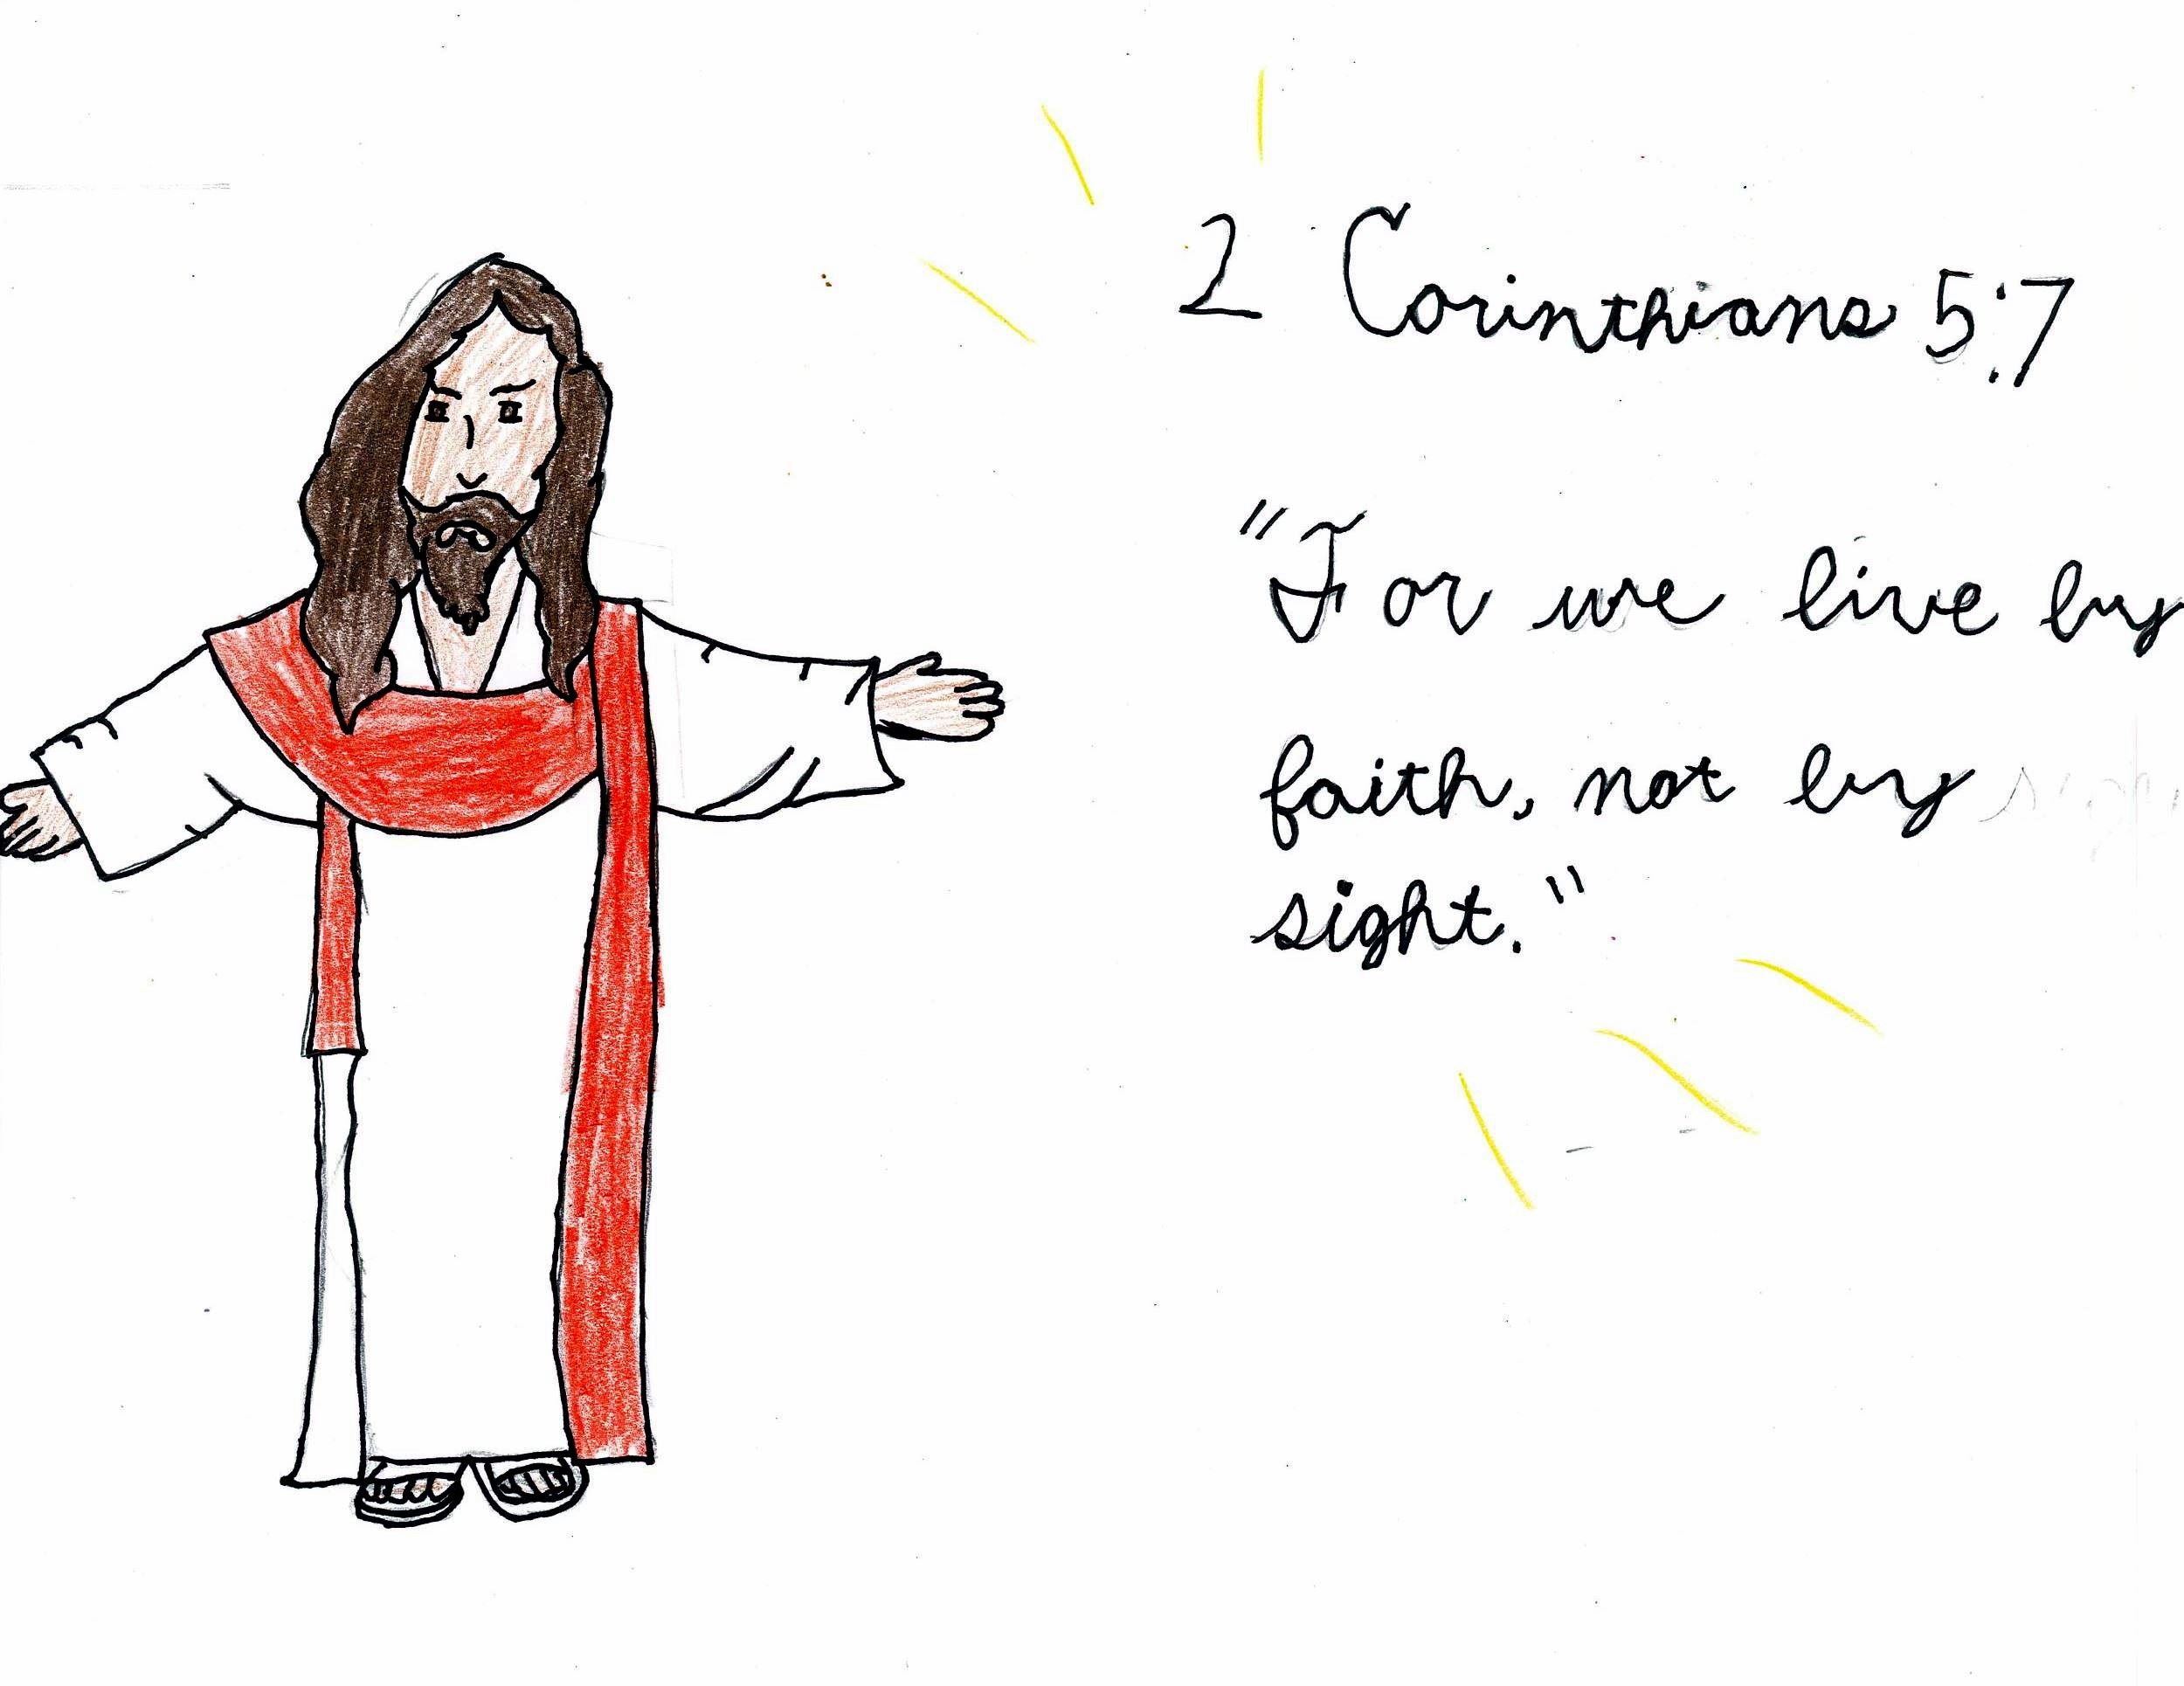 2 Corinthians 5:7
"For we live by
faith, not by
sight."